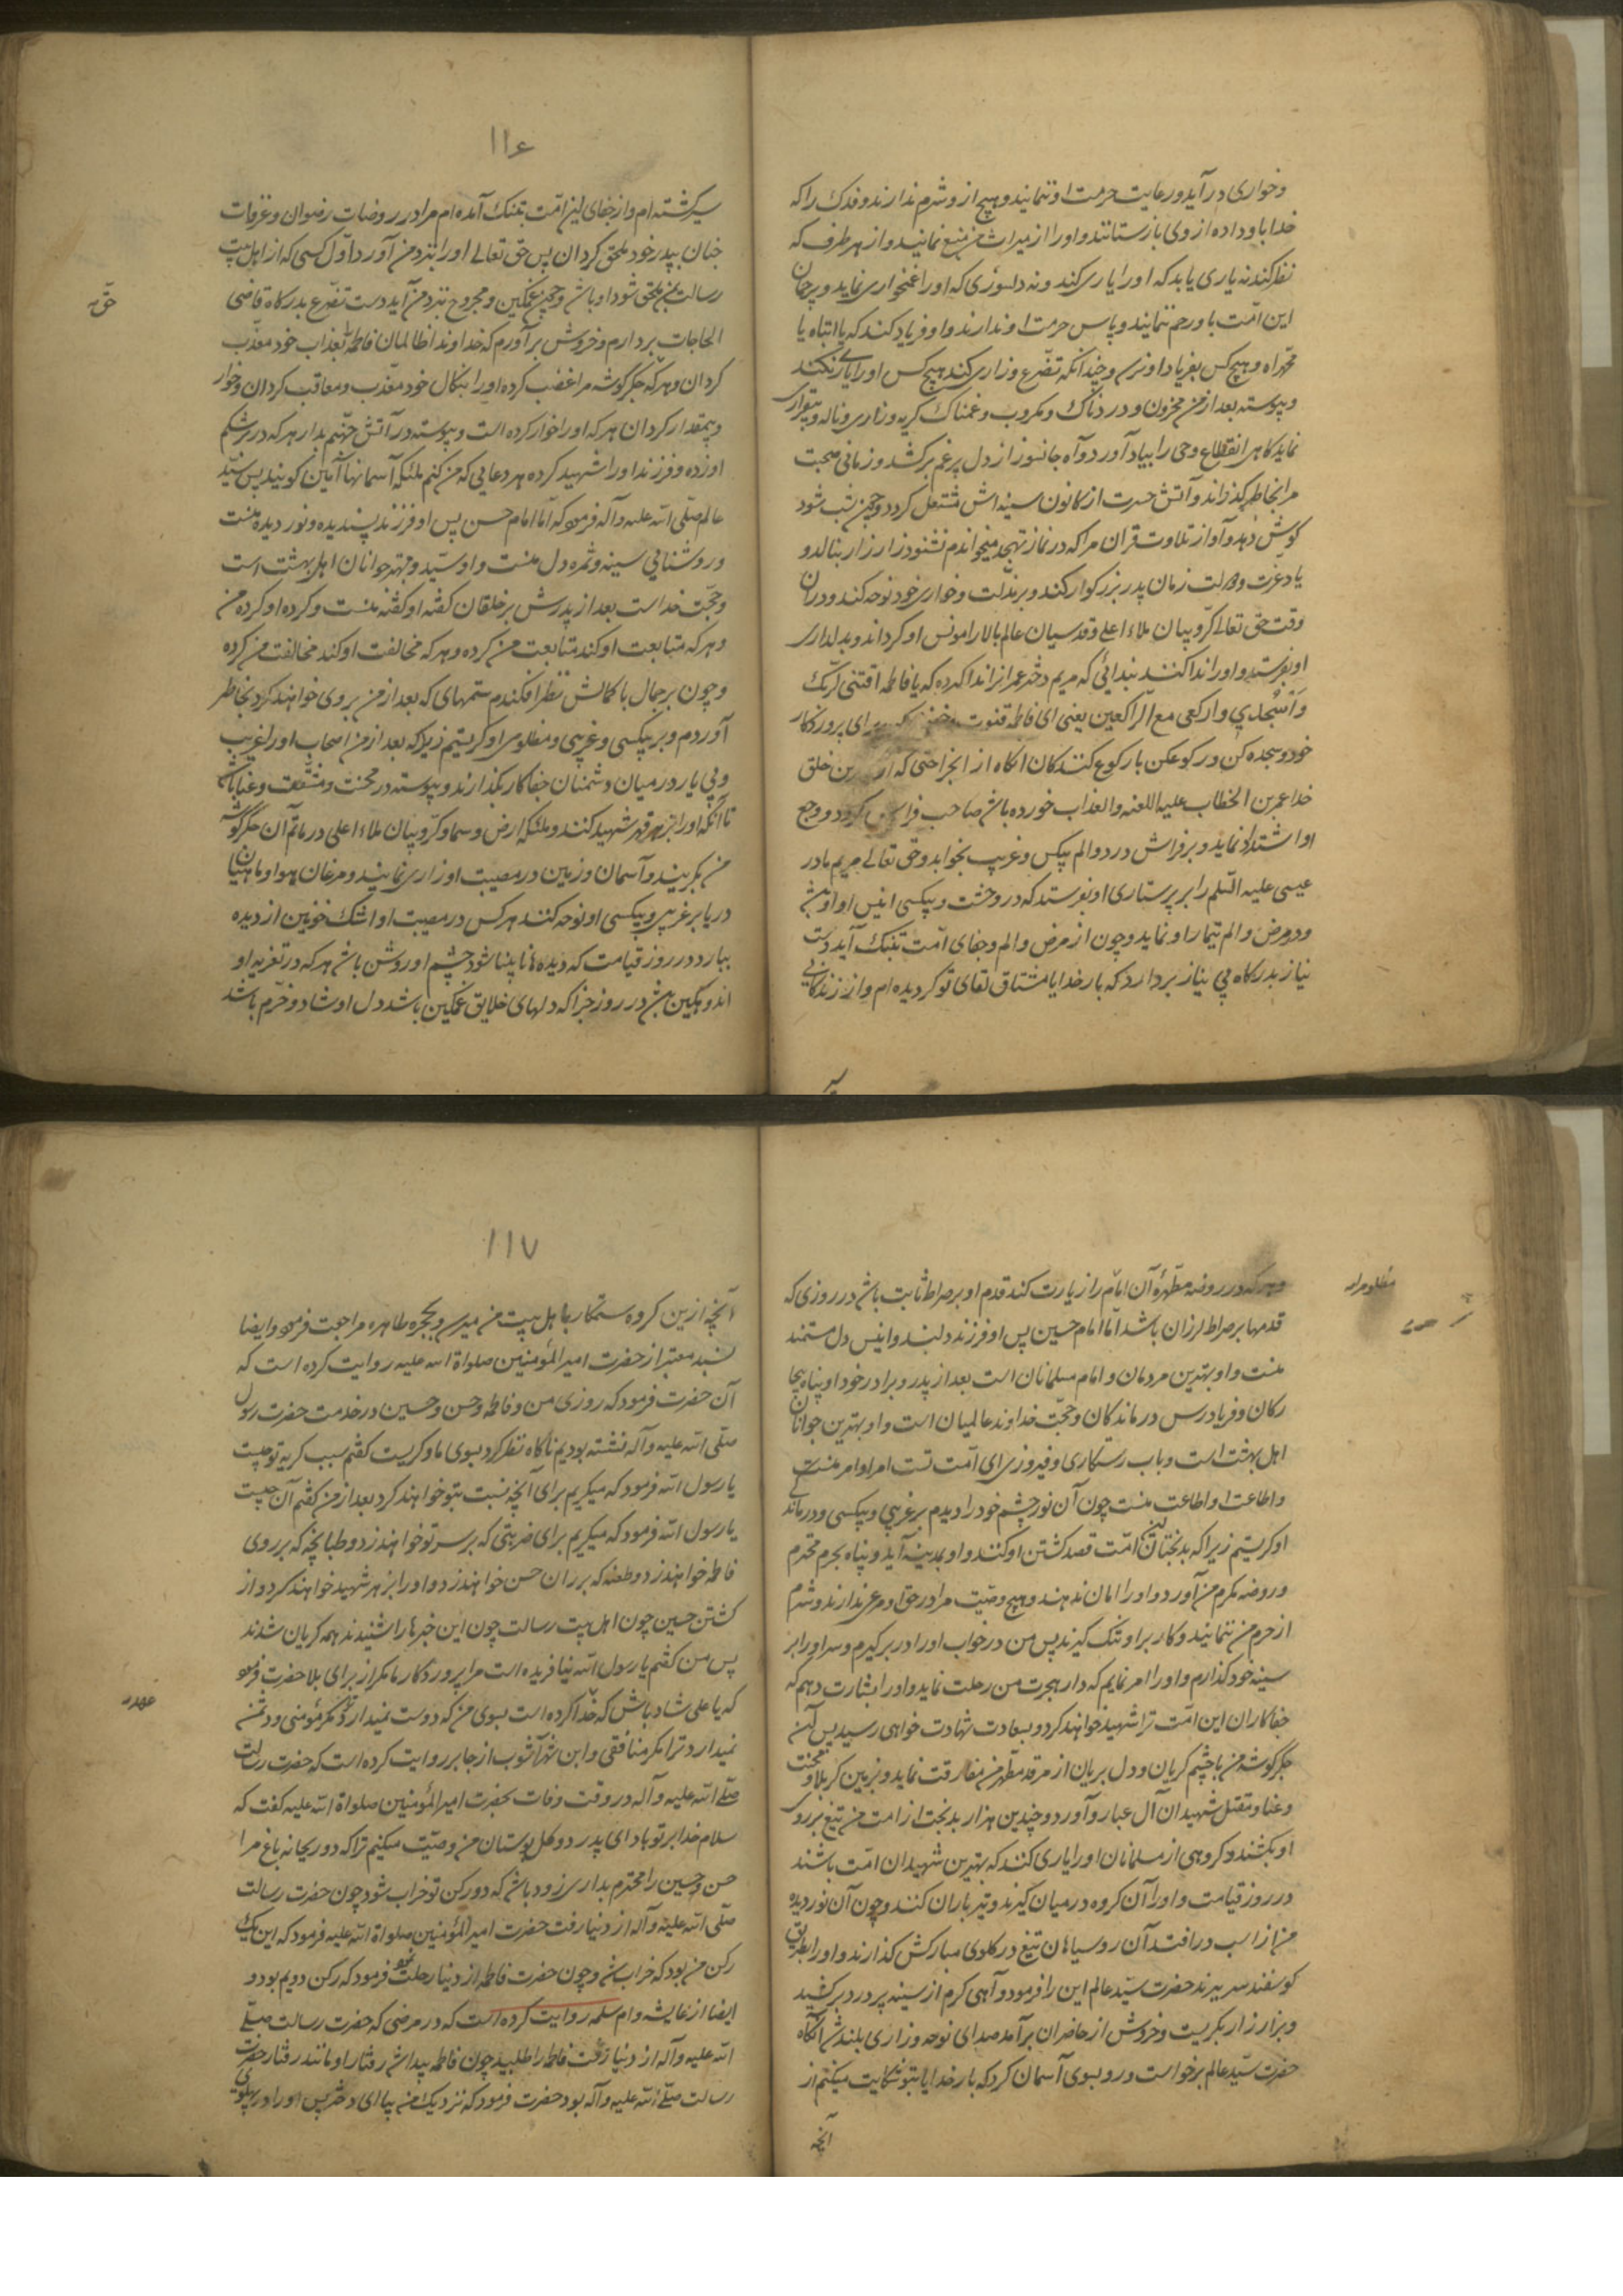 وخواری در آید و رعایت حرمت او ننمایند و هیچ ازو شرم ندارند و فدک را که
خدا باو داده از وی بازستانند و او را از میراث من منع نمایند و از هر طرف که
نظر کند نه یاری یابد که او را یاری کند و نه دلسوزی که او را غمخواری نماید و بر جان
این امّت باو رحم ننمایند و پاس حرمت او ندارند و او فریاد کند که یا ابتاه یا
محمّداه و هیچ کس بفریاد او نرسد و چندانکه تضرّع و زاری کند هیچ کس او را یاری نکند
و پیوسته بعد از من محزون و دردناک و مکروب و غمناک گریه و زاری و ناله و بیقراری
نماید کاهی انقطاع وحی را بیاد آورد و آه جانسوز از دل پر غم برکشد و زمانی صحبت
مرا بخاطر گذراند و آتش حسرت از کانون سینه‌اش مشتعل کردد و چون شب شود
کوش دهد و آواز تلاوت قران مرا که در نماز تهجّد میخواندم نشنود زار زار بنالد و
یاد عزّت و دولت زمان پدر بزرکوار کند و بر مذلت و خواری خود نوحه کند و در ان
وقت حق تعالی کرّوبیان ملاء اعلی و قدسیان عالم بالا را مونس او کرداند و بدلداری
او بفرستد و او را ندا کنند بندائی که مریم دختر عمرانرا ندا کرده که یا فاطمه اقنتی لربّک
وَاسْجُدی وارکعی مع الرّاکعین یعنی ای فاطمه قنوت برای پروردکار
خود و سجده کن و رکوع کن با رکوع کنندکان انکاه از انجراحتی که از بدترین خلق
خدا عمر بن الخطاب علیه اللعنه والعذاب خورده باشد صاحب فراش کردد و وجع
او اشتداد نماید و بر فراش درد و الم بیکس و غریب بخوابد و حق تعالی مریم مادر
عیسی علیه السّلم را بر پرستاری او بفرستد که در وحشت و بیکسی انیس او باشد
و در مرض و الم تیمار او نماید و چون از مرض و الم و جفای امّت بتنک آید دست
نیاز بدرکاه بی نیاز بردارد که بار خدایا مشتاق لقای تو کردیده‌ام و از زندکانی
سیر
۱۱۶
سیر کشته‌ام و از جفای این امّت بتنک آمده‌ام مرا در روضات رضوان و غرفات
جنان بپدر خود ملحق کردان پس حق تعالی او را بنزد من آورد و اوّل کسی که از اهل بیت
رسالت بمن ملحق شود او باشد و چون غمکین و مجروح بنزد من آید دست تضرّع بدرکاه قاضی
الحاجات بردارم و خروش برآورم که خداوندا ظالمان فاطمه را بعذاب خود معذّب
کردان و هرکه جکرکوشه مرا غضب کرده او را بنکال خود معذّب و معاقب کردان و خوار
و بیمقدار کردان هرکه او را خوار کرده است و پیوسته در آتش جهنّم بدار هرکه در بر شکم
او زده و فرزند او را شهید کرده هر دعایی که من کنم ملئکه آسمانها آمین کویند پس سیّد
عالم صلّی الله علیه وآله فرمود که امّا امام حسن پس او فرزند پسندیده و نور دیده منست
و روشنایی سینه و ثمره دل منست و او سیّد و مهتر جوانان اهل بهشت است
و حجّت خداست بعد از پدرش بر خلقان کفته او کفته منست و کرده او کرده من
و هرکه متابعت او کند متابعت من کرده و هرکه مخالفت او کند مخالفت من کرده
و چون بر جمال با کمالش نظر افکندم ستمهای که بعد از من بر وی خواهند کرد بخاطر
آوردم و بر بیکسی و غریبی و مظلومی او کریستم زیرا که بعد از من اصحاب او را غریب
و بی یار در میان دشمنان جفاکار بکذارند و پیوسته در محنت و مشقّت و عنا باشد
تا آنکه او را بزهر قهر شهید کنند و ملئکه ارض و سما و کرّوبیان ملاء اعلی در ماتم آن جکرکوشه
من بکریند و آسمان و زمین در مصیبت او زاری نمایند و مرغان هوا و ماهیان
دریا بر غریبی و بیکسی او نوحه کنند هرکس در مصیبت او اشک خونین از دیده
ببارد در روز قیامت که دیده ها نابینا شود چشم او روشن باشد هرکه در تعزیه او
اندوهکین باشد در روز جزا که دلهای خلایق غمکین باشد دل او شاد و خرّم باشد
حقّه
و هرکه در روضه مطهّرهٔ آن امام را زیارت کند قدم او بر صراط ثابت باشد در روزی که
قدمها بر صراط لرزان باشد امّا امام حسین پس او فرزند دلبند و انیس دل مستمند
منست و او بهترین مردمان و امام مسلمانان است بعد از پدر و برادر خود او پناه بیچا
رکان و فریادرس درماندکان و حجّت خداوند عالمیان است و او بهترین جوانان
اهل بهشت است و باب رستکاری و فیروزی ای امّت تست امر او امر منست
و اطاعت او اطاعت منست چون آن نور چشم خود را دیدم بر غریبی و بیکسی و درماندکی
او کریستم زیرا که بدبختان این امّت قصد کشتن او کنند و او بمدینه آید و پناه بحرم محترم
و روضه مکرم من آورد و او را امان ندهند و هیچ وصیّت مرا در حق او مرعی ندارند و شرم
از حرم من ننمایند و کار بر او تنک کیرند پس من در خواب او را در بر کیرم و سر او را بر
سینه خود کذارم و او را امر نمایم که از دار هجرت من رحلت نماید و او را بشارت دهم که
جفاکاران این امّت ترا شهید خواهند کرد و بسعادت شهادت خواهی رسید پس آن
جکرکوشه من با چشم کریان و دل بریان از مرقد مطهّر من مفارقت نماید و بزمین کربلا و محنت
و عنا و مقتل شهیدان آل عبا رو آورد و چندین هزار بدبخت از امت من تیغ بر روی
او بکشند و کروهی از مسلمانان او را یاری کنند که بهترین شهیدان امّت باشند
در روز قیامت و او را آن کروه در میان کیرند و تیر باران کنند و چون آن نور دیده
من از اسب در افتد آن روسیاهان تیغ در کلوی مبارکش کذارند و او را بطریق
کوسفند سر ببرند حضرت سیّد عالم این را فرمود و آهی کرم از سینه پر درد برکشید
و زار زار بکریست و خروش از حاضران برآمد صدای نوحه و زاری بلند شد آنکاه
حضرت سیّد عالم برخواست و رو بسوی آسمان کرد که بار خدایا بتو شکایت میکنم از
آنچه
مظلومرا
۱۱۷
آنچه ازین کروه ستمکار باهل بیت من میرسد و بحجره طاهره مراجعت فرمود و ایضا
بسند معتبر از حضرت امیرالمؤمنین صلواة الله علیه روایت کرده است که
آن حضرت فرمود که روزی من و فاطمه و حسن و حسین در خدمت حضرت رسول
صلّی الله علیه وآله نشسته بودیم ناکاه نظر کرد بسوی ما و کریست کفتم سبب کریه تو چیست
یا رسول الله فرمود که میکریم برای آنچه نسبت بتو خواهند کرد بعد از من کفتم آن چیست
یا رسول الله فرمود که میکریم برای ضربتی که بر سر تو خواهند زد و طبانچه که بر روی
فاطمه خواهند زد و طعنه که بر ران حسن خواهند زد و او را بزهر شهید خواهند کرد و از
کشتن حسین چون اهل بیت رسالت چون این خبرها را شنیدند همه کریان شدند
پس من کفتم یا رسول الله نیافریده است مرا پروردکار ما مکر از برای بلا حضرت فرمود
که یا علی شاد باش که خدا کرده است بسوی من که دوست نمیدارد ترا مکر مؤمنی و دشمن
نمیدارد ترا مکر منافقی و ابن شهرآشوب از جابر روایت کرده است که حضرت رسالت
صلّی الله علیه وآله در وقت وفات بحضرت امیرالمؤمنین صلواة الله علیه کفت که
سلام خدا بر تو باد ای پدر دو کل بوستان من وصیّت میکنم ترا که دو ریحانه باغ مرا
حسن و حسین را محترم بداری زود باشد که دو رکن تو خراب شود چون حضرت رسالت
صلّی الله علیه وآله از دنیا رفت حضرت امیرالمؤمنین صلواة الله علیه فرمود که این یک
رکن من بود که خراب شد و چون حضرت فاطمه از دنیا رحلت نمود فرمود که رکن دویم بود و
ایضا از عایشه و ام سلمه روایت کرده است که در مرضی که حضرت رسالت صلّی
الله علیه وآله از دنیا رفت فاطمه را طلبید چون فاطمه پیدا شد رفتار او مانند رفتار حضرت
رسالت صلّی الله علیه وآله بود حضرت فرمود که نزدیک من بیا ای دختر پس او را در پهلوی
عهد